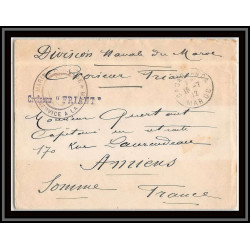 Division Navale du Maroc
Croiseur Friant
Croiseur "FRIANT"
SERVICE À LA
Monsieur
Capitaine en retraite
170 Rue
Amiens
Somme France